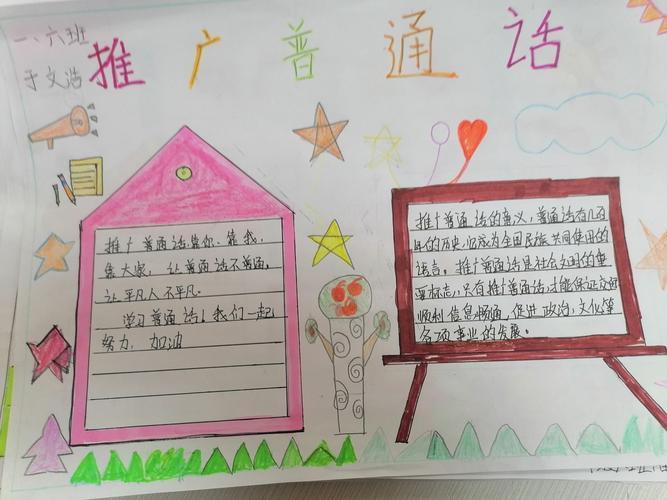 一、六班
于文浩
推广普通话
推广普通话靠你、靠我,
靠大家, 让普通话不普通,
让平凡人不平凡。
学习普通话!我们一起
努力, 加油
推广普通话的意义,普通话有几百
年的历史,归成为全国民族共同使用的
语言。推广普通话是社会文明的重
要标志,只有推广普通话,才能保证交流
顺利信息畅通,促进政治,文化等
各项事业的发展。